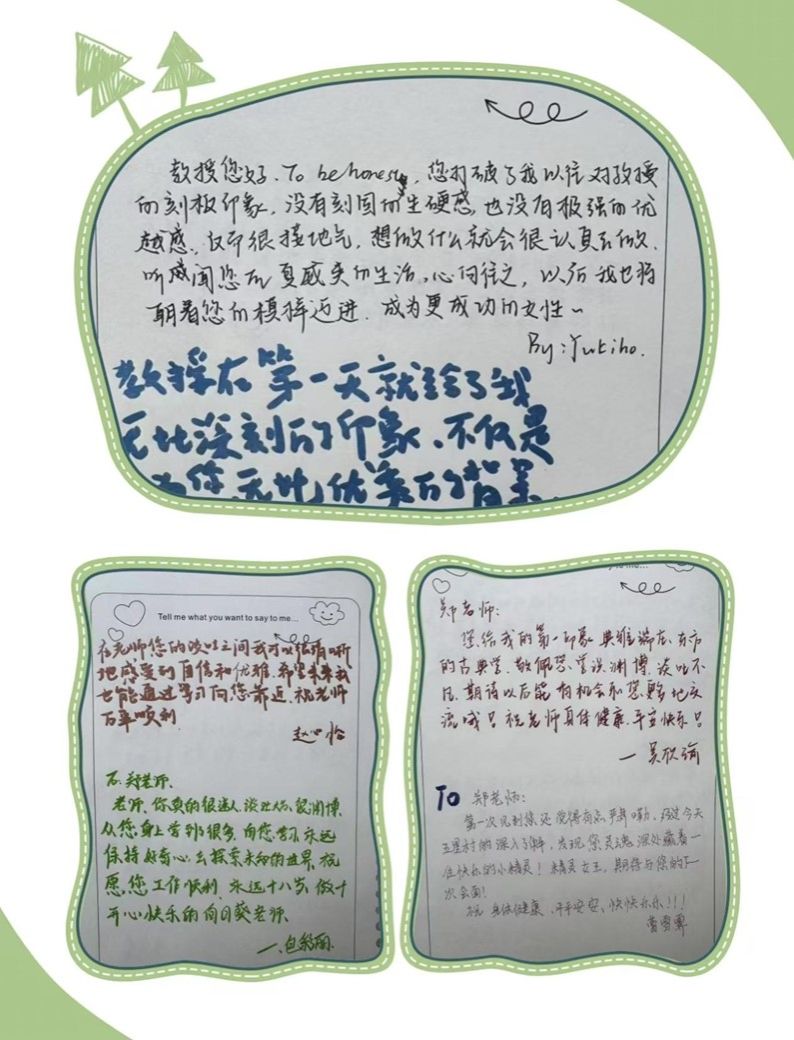 教授您好. To be honest, 您打破了我以往对教授
的刻板印象, 没有刻固的生硬感, 也没有极强的优
越感. 反而很接地气, 想做什么就会很认真去做.
听闻您在夏威夷的生活, 心向往之, 以后我也将
朝着您的模样迈进. 成为更成功的女性~
By: Yukiho.
教授在第一天就给了我
无比深刻的印象, 不仅是
你 无比优美的背景
Tell me what you want to say to me...
在老师您的谈吐之间我可以很清晰
地感受到自信和优雅. 希望未来我
也能通过学习向您靠近. 祝老师
万事顺利
赵心怡
To. 郑老师.
老师, 你真的很迷人, 谈吐大方、很渊博.
从您身上学到很多, 向您学习永远
保持好奇心去探索未知的世界. 祝
愿您工作顺利 永远十八岁, 做个
开心快乐的向日葵老师.
一包
to me...
郑老师:
您给我的第一印象 典雅端庄. 东方
的古典学. 敬佩您 学识渊博, 谈吐不
凡. 期待以后能有机会和您 地交
流哦! 祝老师身体健康. 平安快乐!
一吴欣瑜
To 郑老师:
第一次见到您还觉得有点严肃嘞, 经过今天
五星村的深入了解, 发现您灵魂深处藏着一
位快乐的小精灵! 精灵女王, 期待与您的下
次会面!
祝 身体健康、平平安安、快快乐乐!!!
曹雪